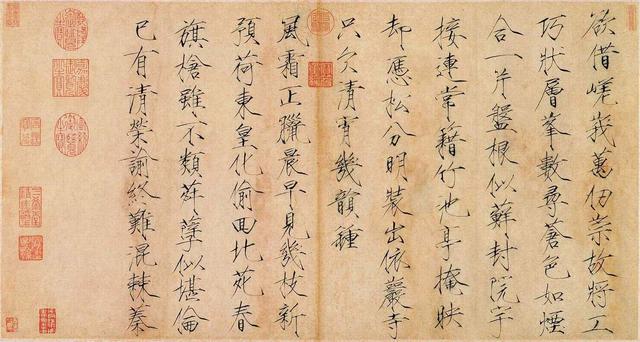 欲借嵯峩萬仞崇故將工
巧狀層峯數尋蒼色如煙
合一片盤根似蘚封院宇
接連常藉竹也亭掩映
却憑松分明裝出依巖寺
只欠清宵幾韻鍾
風霜正臘晨早見幾枝新
預荷東皇化偷回北苑春
旗槍雖不類荈孽似堪倫
已有清榮諭終難混棘蓁